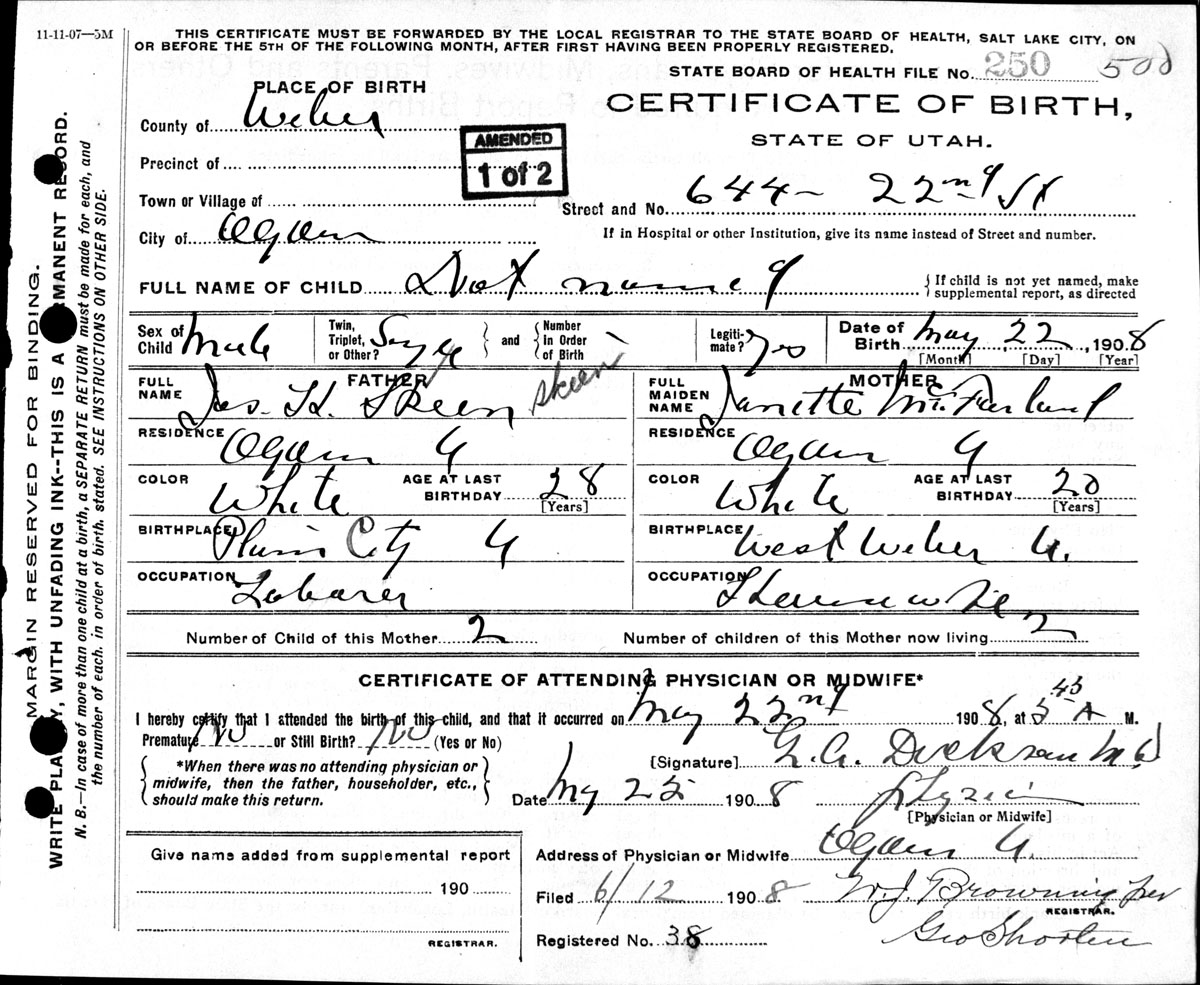 11-11-07—5M
THIS CERTIFICATE MUST BE FORWARDED BY THE LOCAL REGISTRAR TO THE STATE BOARD OF HEALTH, SALT LAKE CITY, ON
OR BEFORE THE 5TH OF THE FOLLOWING MONTH, AFTER FIRST HAVING BEEN PROPERLY REGISTERED.
STATE BOARD OF HEALTH FILE No. 250 500
PLACE OF BIRTH
CERTIFICATE OF BIRTH,
STATE OF UTAH.
County of Weber
AMENDED
1 of 2
Precinct of
Town or Village of
Street and No. 644 - 22nd St
City of Ogden
If in Hospital or other Institution, give its name instead of Street and number.
FULL NAME OF CHILD Not named
{ If child is not yet named, make
supplemental report, as directed
Sex of Child Male
Twin, Triplet, or Other? Single } and { Number in Order of Birth
Legitimate? Yes
Date of Birth May 22, 1908
[Month] [Day] [Year]
FATHER
FULL NAME Jas. H. Skeen skeen
RESIDENCE Ogden U
COLOR White
AGE AT LAST BIRTHDAY 28
[Years]
BIRTHPLACE Plain City U
OCCUPATION Laborer
MOTHER
FULL MAIDEN NAME Janette McFarland
RESIDENCE Ogden U
COLOR White
AGE AT LAST BIRTHDAY 20
[Years]
BIRTHPLACE West Weber U.
OCCUPATION Housewife
Number of Child of this Mother 2
Number of children of this Mother now living 2
CERTIFICATE OF ATTENDING PHYSICIAN OR MIDWIFE*
I hereby certify that I attended the birth of this child, and that it occurred on May 22nd 1908, at 5 45 A M.
Premature No or Still Birth? No (Yes or No)
*When there was no attending physician or
midwife, then the father, householder, etc.,
should make this return.
[Signature] Dickson M.D
Date My 25 1908
[Physician or Midwife]
Address of Physician or Midwife Ogden U.
Filed 6/12 1908
W.J. Browning per
REGISTRAR.
Geo Shorten
Registered No. 38
Give name added from supplemental report
190
REGISTRAR.
MARGIN RESERVED FOR BINDING.
WRITE PLAINLY, WITH UNFADING INK--THIS IS A PERMANENT RECORD.
N. B.—In case of more than one child at a birth, a SEPARATE RETURN must be made for each, and
the number of each, in order of birth, stated. SEE INSTRUCTIONS ON OTHER SIDE.